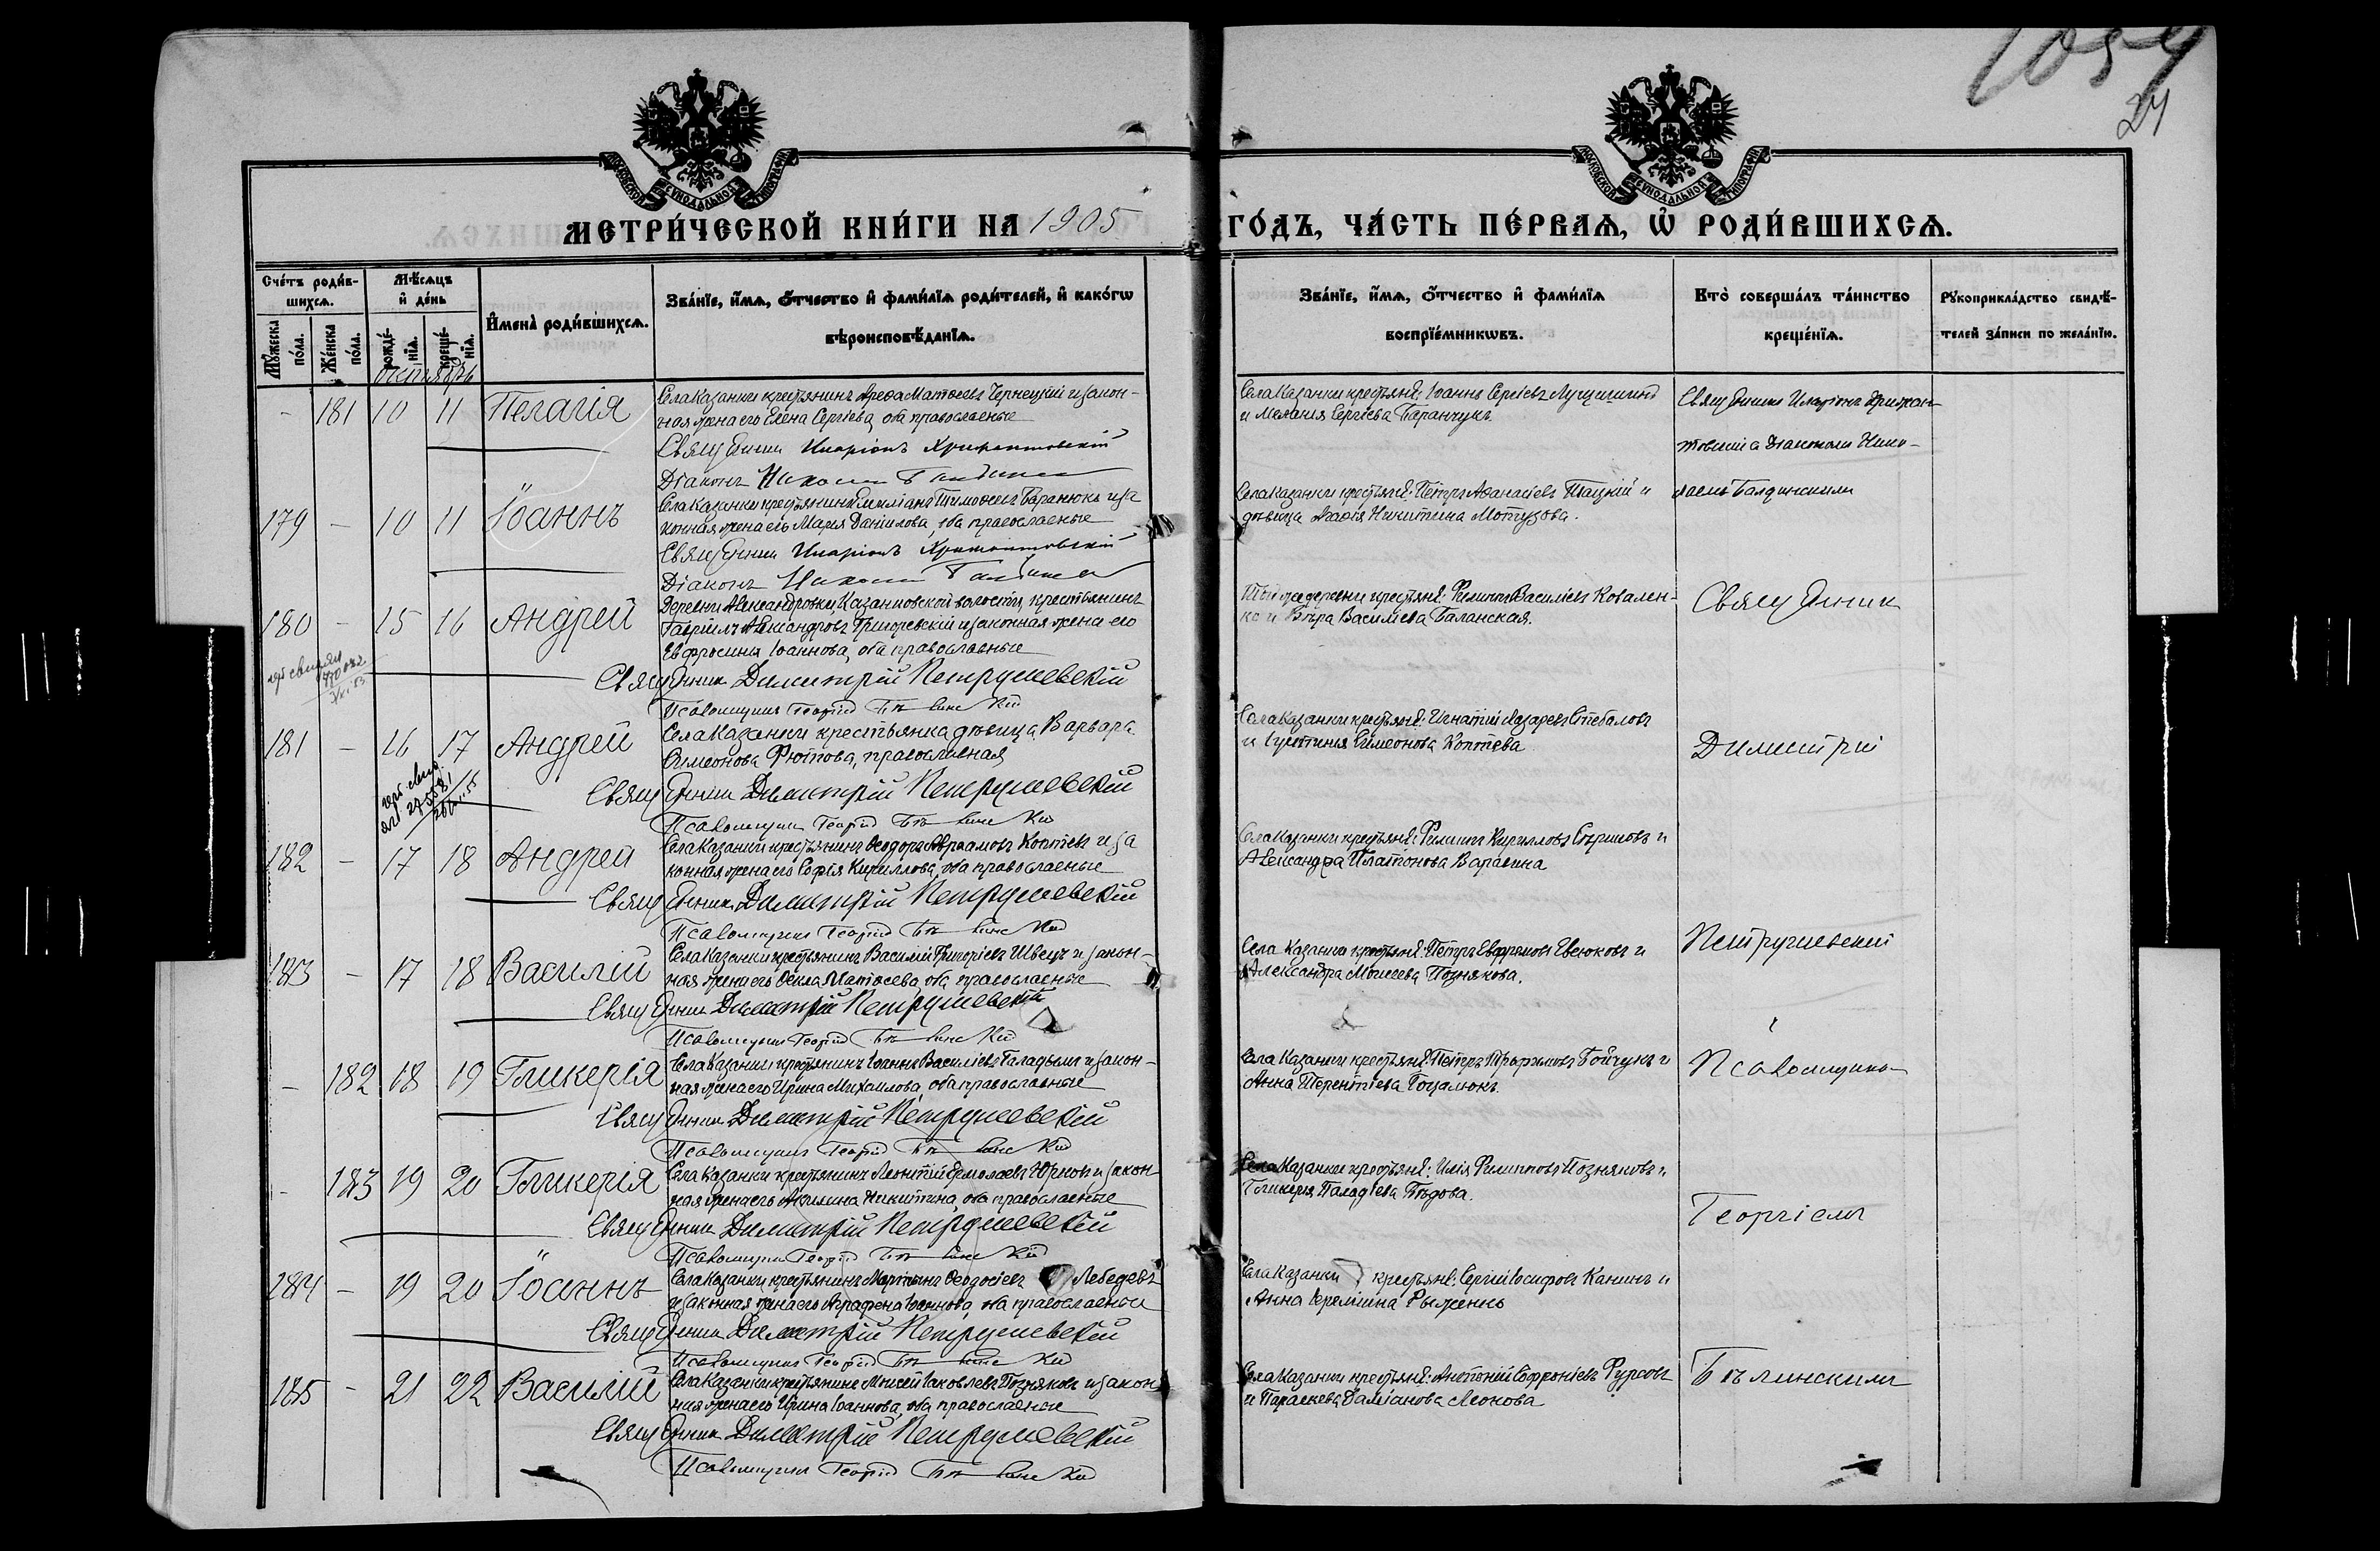 1054
24
МОСКОВСКОЙ СѴНОДАЛЬНОЙ ТИПОГРАФІИ
МОСКОВСКОЙ СѴНОДАЛЬНОЙ ТИПОГРАФІИ
МЕТРИ́ЧЕСКОЙ КНИ́ГИ НА 1905 ГО́ДЪ, ЧА́СТЬ ПЕ́РВАѦ, Ѡ҆ РОДИ́ВШИХСѦ.
Сче́тъ роди́в-
шихсѧ.
Мꙋ́жеска по́ла.
Же́нска по́ла.
Мѣ́сѧцъ и҆ де́нь
рожде́-нїѧ.
креще́-нїѧ.
И҆мена̀ роди́вшихсѧ.
Зва́нїе, и҆́мѧ, ѻ҆́тчество и҆ фами́лїѧ роди́телей, и҆ како́гѡ
вѣроисповѣ́данїѧ.
Зва́нїе, и҆́мѧ, ѻ҆́тчество и҆ фами́лїѧ
воспрїе́мникѡвъ.
Кто̀ соверша́лъ та́инство
креще́нїѧ.
Рꙋкоприкла́дство свидѣ́-
телей за́писи по жела́нїю.
октябрь
- 181 10 11 Пелагія
Села Казанки крестьянинъ Матѳеевъ Чернецкій и закон-
ная жена его Елена Сергіева, оба православные
Священникъ Иларіонъ
Діаконъ Николай
Села Казанки крестьяне: Іоаннъ Сергіевъ
и Меланія Сергіева Баранчукъ.
Священникъ Иларіонъ
товскій съ Діакономъ Нико-
лаемъ Балдинскимъ
179 - 10 11 Іоаннъ
Села Казанки крестьянинъ Емиліанъ Тимоѳеевъ Баранюкъ и за
конная жена его Марія Даніилова, оба православные
Священникъ Иларіонъ
Діаконъ Николай
Села Казанки крестьяне: Петръ Аѳанасіевъ и
дѣвица Агаѳія Никитина Мотузова.
180 - 15 16 Андрей
Деревни Александровки, Казанковской волости, крестьянинъ
Гавріилъ Александровъ Григоревскій и законная жена его
Евфросинія Іоаннова, оба православные
Священникъ Димитрій Петрушевскій
Псаломщикъ Георгій Бѣлинскій
Той же деревни крестьяне: Филиппъ Василіевъ Ковален-
ко и Вѣра Василіева Баланская.
Священник
181 - 16 17 Андрей
Села Казанки крестьянка дѣвица Варвара
Симеонова Фютова, православная
Священникъ Димитрій Петрушевскій
Псаломщикъ Георгій Бѣлинскій
Села Казанки крестьяне: Игнатій Лазаревъ Стебаловъ
и Іустинія Симеонова Коптева
Димитрій
182 - 17 18 Андрей
Села Казанки крестьянинъ Ѳеодоръ Авраамовъ Коптевъ и за
конная жена его Софія Кириллова, оба православные
Священникъ Димитрій Петрушевскій
Псаломщикъ Георгій Бѣлинскій
Села Казанки крестьяне: Филиппъ Кирилловъ и
Александра Платонова Варавина
183 - 17 18 Василій
Села Казанки крестьянинъ Василій Григоріевъ Швецъ и закон-
ная жена его Ѳекла Матѳеева, оба православные
Священникъ Димитрій Петрушевскій
Псаломщикъ Георгій Бѣлинскій
Села Казанки крестьяне: Петръ Евфремовъ Евсюковъ и
Александра Моисеева Познякова.
Петрушевскій
- 182 18 19 Гликерія
Села Казанки крестьянинъ Іоаннъ Василіевъ и закон-
ная жена его Ирина Михаилова, оба православные
Священникъ Димитрій Петрушевскій
Псаломщикъ Георгій Бѣлинскій
Села Казанки крестьяне: Петръ Трофимовъ Бойчукъ и
Анна Терентіева Гоцалюкъ.
Псаломщикомъ
- 183 19 20 Гликерія
Села Казанки крестьянинъ Леонтій Ермолаевъ Юрковъ и закон
ная жена его Акилина Никитина, оба православные
Священникъ Димитрій Петрушевскій
Псаломщикъ Георгій Бѣлинскій
Села Казанки крестьяне: Илія Филипповъ Позняковъ и
Гликерія Паладіева Бѣдова.
Георгіемъ
184 - 19 20 Іоаннъ
Села Казанки крестьянинъ Мартинъ Ѳеодосіевъ Лебедевъ
и законная жена его Аграфена Іоаннова, оба православные
Священникъ Димитрій Петрушевскій
Псаломщикъ Георгій Бѣлинскій
Села Казанки крестьяне: Сергій Іосифовъ Канинъ и
Анна Іереміина Рыженко
185 - 21 22 Василій
Села Казанки крестьянинъ Моисей Іаковлевъ Позняковъ и закон
ная жена его Ирина Іоаннова, оба православные
Священникъ Димитрій Петрушевскій
Псаломщикъ Георгій Бѣлинскій
Села Казанки крестьяне: Антоній Софроніевъ Фурсовъ
и Параскева Даміанова Леонова
Бѣлинскимъ